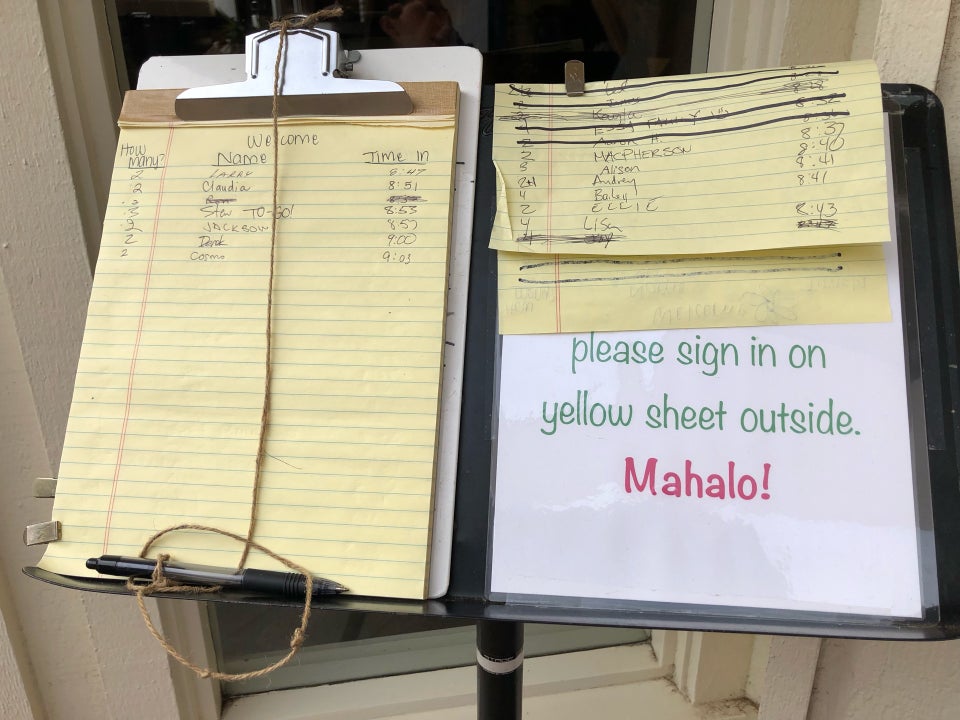 Welcome
How many? Name Time In
2 LARRY 8:47
2 Claudia 8:51
3
3 Stew TO-GO! 8:53
2 JACKSON 8:57
2 Derek 9:00
2 Cosmo 9:03
Kayla
ESSA FAMILY 8:32
2 Aaron 8:37
2 MACPHERSON 8:40
3 Alison 8:41
2+1 Audrey 8:41
4 Bailey
2 ELLIE
4 Lisa 8:43
4
please sign in on
yellow sheet outside.
Mahalo!